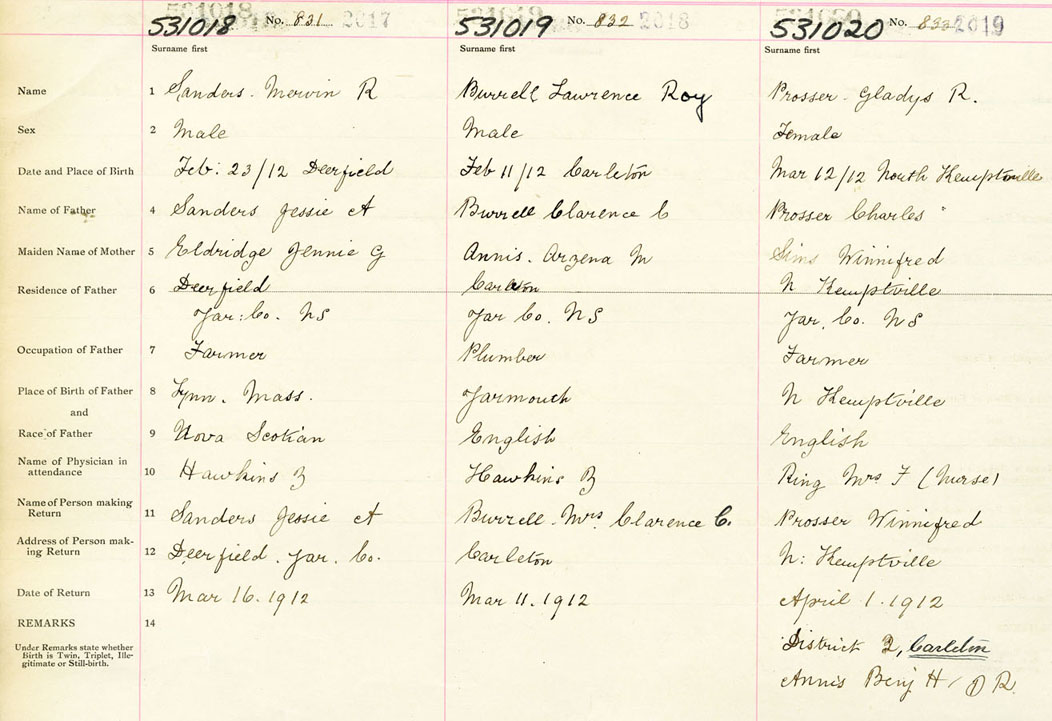 531018 No. 831 2017 531019 No. 832 2018 531020 No. 2019
Surname first Surname first Surname first
Name 1 Sanders. Mervin R Burrell Lawrence Roy Prosser Gladys R.
Sex 2 Male Male Female
Date and Place of Birth 3 Feb: 23/12 Deerfield Feb 11/12 Carleton Mar 12/12 North Kemptville
Name of Father 4 Sanders Jessie A Burrell Clarence C Prosser Charles
Maiden Name of Mother 5 Eldridge Jennie G Annis. Arzena M Sims Winnifred
Residence of Father 6 Deerfield Carleton N Kemptville
Yar: Co. NS Yar Co. NS Yar. Co. NS
Occupation of Father 7 Farmer Plumber Farmer
Place of Birth of Father 8 Lynn. Mass. Yarmouth N Kemptville
and
Race of Father 9 Nova Scotian English English
Name of Physician in
attendance 10 Hawkins Z Hawkins Z Ring Mrs F (Nurse)
Name of Person making
Return 11 Sanders Jessie A Burrell. Mrs Clarence C. Prosser Winnifred
Address of Person mak-
ing Return 12 Deerfield. Yar. Co. Carleton N: Kemptville
Date of Return 13 Mar 16. 1912 Mar 11. 1912 April 1. 1912
REMARKS 14
Under Remarks state whether
Birth is Twin, Triplet, Ille-
gitimate or Still-birth.
District 2, Carleton
Annis Benj H / D R.